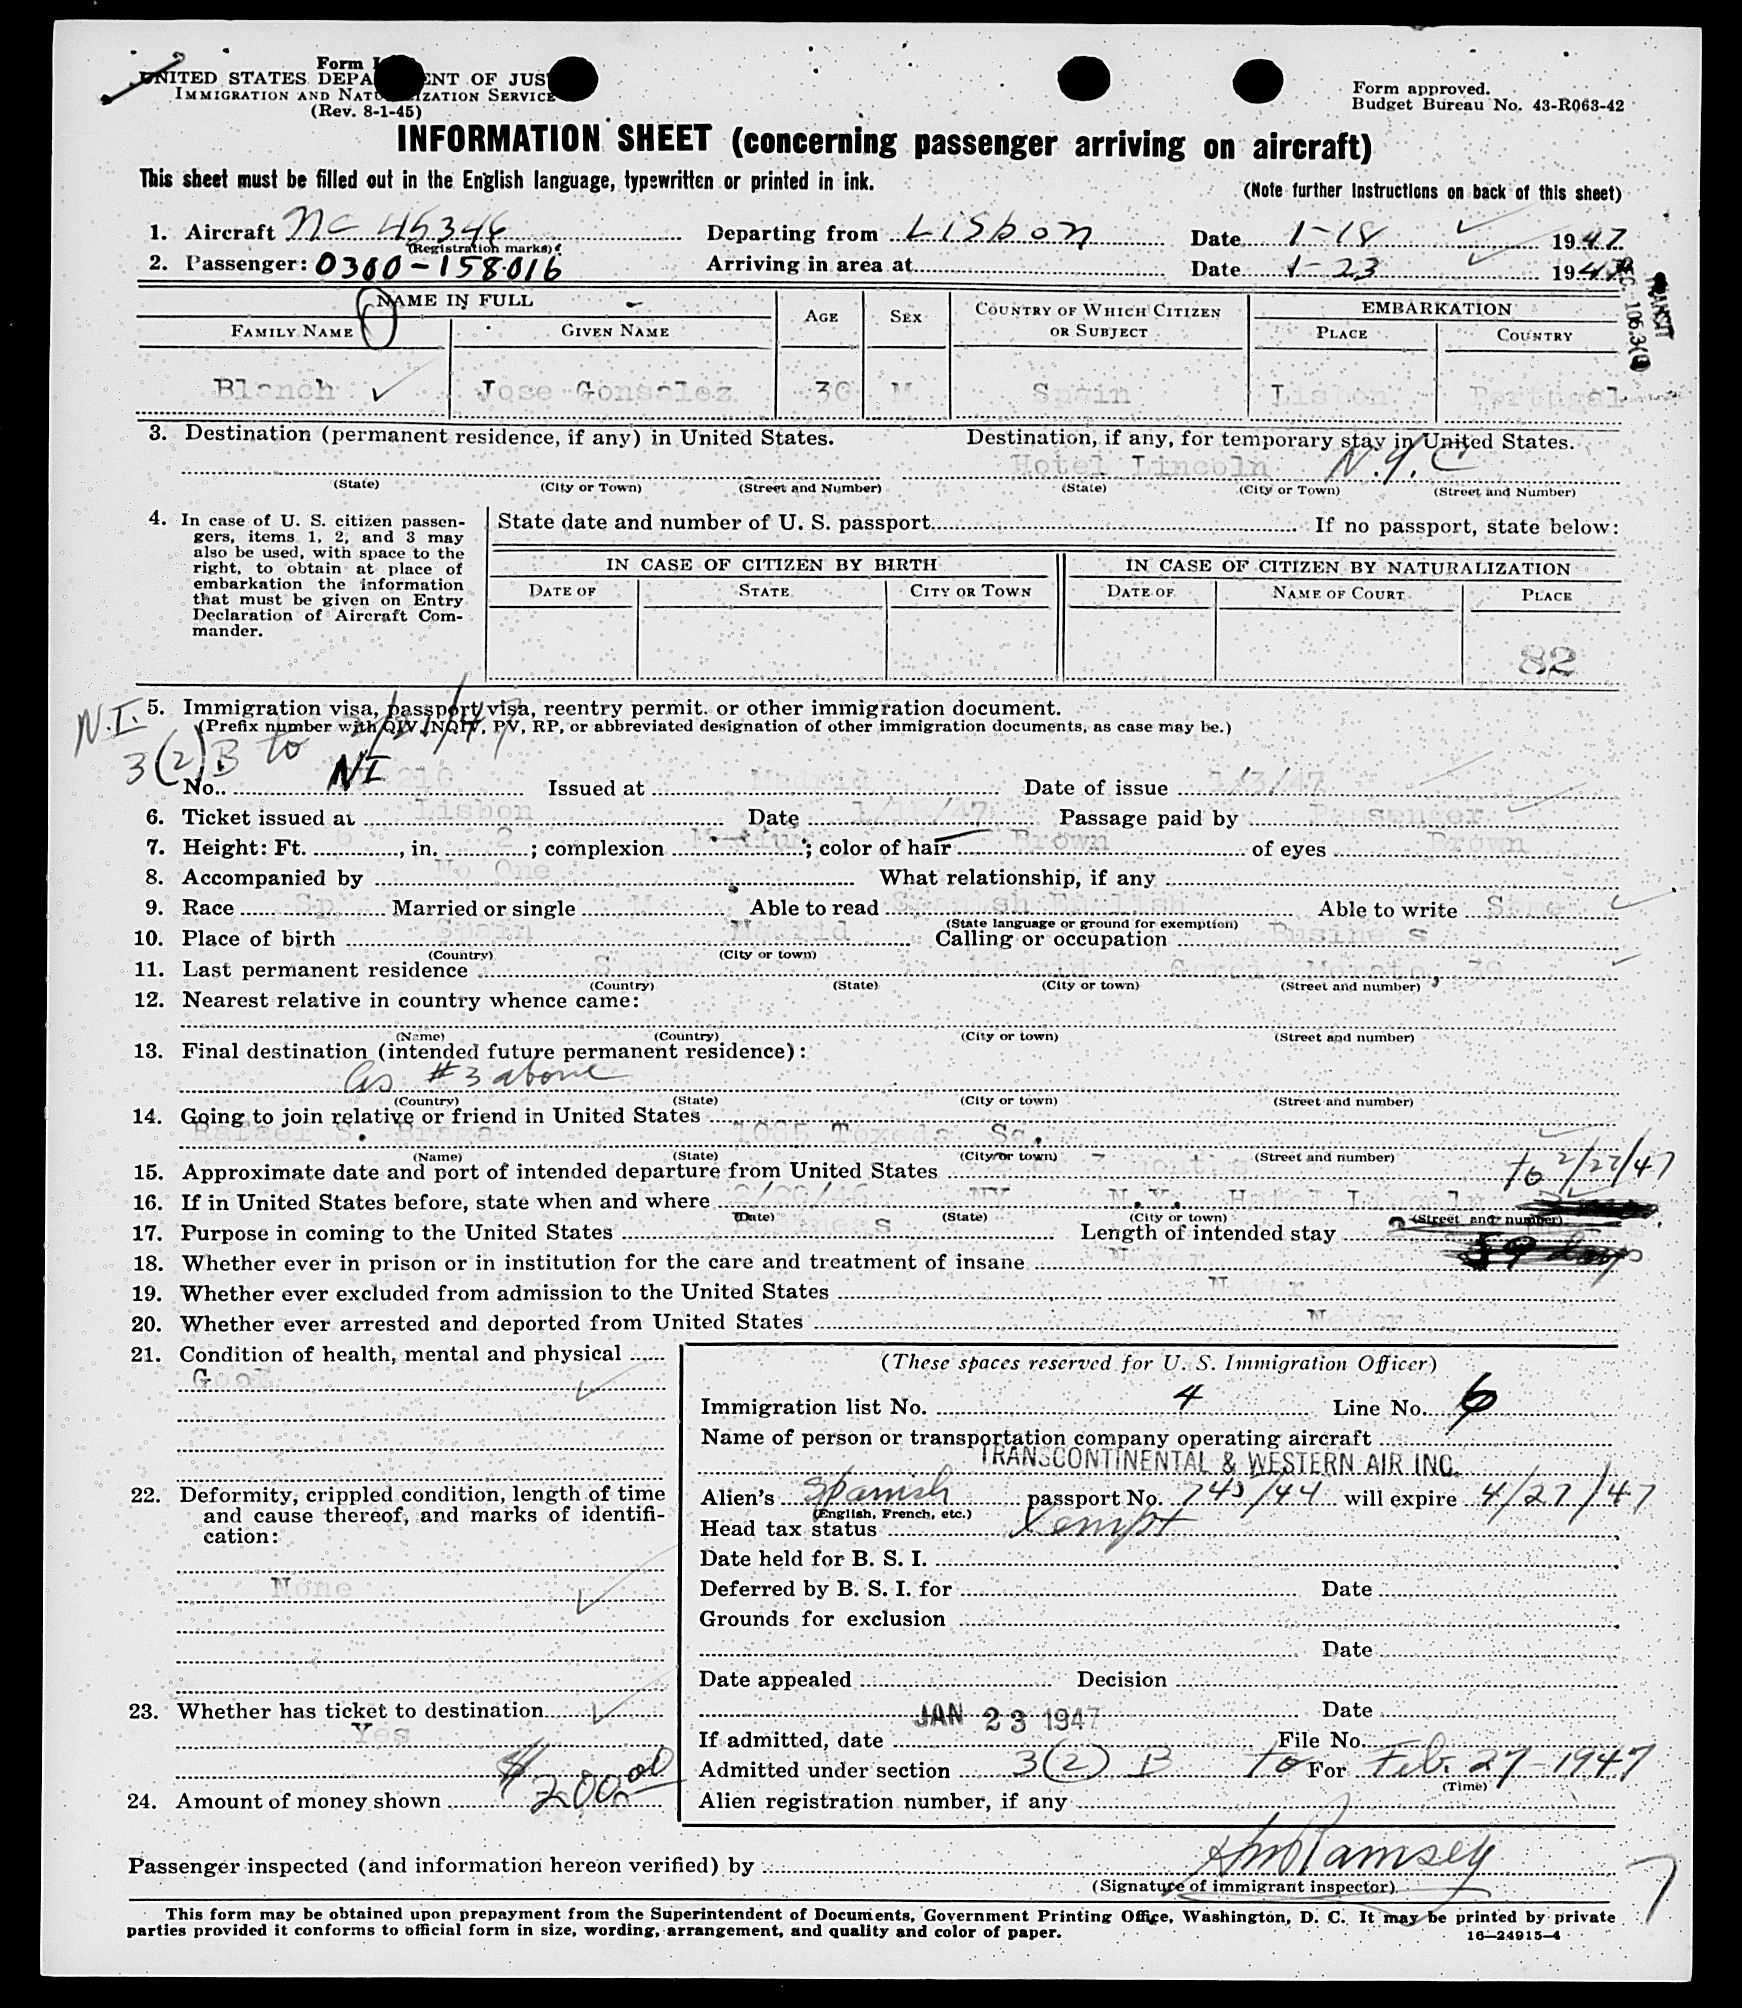 Form I
UNITED STATES DEPA ENT OF JUS
IMMIGRATION AND NATU IZATION SERVICE
(Rev. 8-1-45)
Form approved.
Budget Bureau No. 43-R063-42
INFORMATION SHEET (concerning passenger arriving on aircraft)
This sheet must be filled out in the English language, typewritten or printed in ink.
(Note further instructions on back of this sheet)
1. Aircraft NC 45346 Departing from Lisbon Date 1-18 1947
(Registration marks)
2. Passenger: 0300-158016 Arriving in area at Date 1-23 1947
TRANSIT
SEC. 106.3(
NAME IN FULL AGE SEX COUNTRY OF WHICH CITIZEN OR SUBJECT EMBARKATION
FAMILY NAME GIVEN NAME PLACE COUNTRY
Blanch Jose Gonsalez 36 M Spain Lisbon Portugal
3. Destination (permanent residence, if any) in United States. Destination, if any, for temporary stay in United States.
Hotel Lincoln N.Y.C
(State) (City or Town) (Street and Number) (State) (City or Town) (Street and Number)
4. In case of U. S. citizen passen-
gers, items 1, 2, and 3 may
also be used, with space to the
right, to obtain at place of
embarkation the information
that must be given on Entry
Declaration of Aircraft Com-
mander.
State date and number of U. S. passport If no passport, state below:
IN CASE OF CITIZEN BY BIRTH IN CASE OF CITIZEN BY NATURALIZATION
DATE OF STATE CITY OR TOWN DATE OF NAME OF COURT PLACE
82
5. Immigration visa, passport visa, reentry permit, or other immigration document.
(Prefix number with QIV, NQIV, PV, RP, or abbreviated designation of other immigration documents, as case may be.)
N.I.
3(2)B to
No. NI 210 Issued at Madrid Date of issue 1/3/47
6. Ticket issued at Lisbon Date Passage paid by Passenger
7. Height: Ft. 6, in. 2; complexion Medium; color of hair Brown of eyes Brown
8. Accompanied by No One What relationship, if any
9. Race Sp. Married or single M Able to read Spanish English Able to write Same
(State language or ground for exemption)
10. Place of birth Spain Madrid Calling or occupation Business
(Country) (City or town)
11. Last permanent residence Spain Madrid Garcia Morato, 39
(Country) (State) (City or town) (Street and number)
12. Nearest relative in country whence came:
(Name) (Country) (City or town) (Street and number)
13. Final destination (intended future permanent residence):
As #3 above
(Country) (State) (City or town) (Street and number)
14. Going to join relative or friend in United States
Rafael S. 1005 Sq.
(Name) (State) (City or town) (Street and number)
15. Approximate date and port of intended departure from United States 2 or months to 2/27/47
16. If in United States before, state when and where NY N.Y. Hotel Lincoln
(Date) (State) (City or town) (Street and number)
17. Purpose in coming to the United States Business Length of intended stay
18. Whether ever in prison or in institution for the care and treatment of insane Never
19. Whether ever excluded from admission to the United States Never
20. Whether ever arrested and deported from United States Never
21. Condition of health, mental and physical
Good
22. Deformity, crippled condition, length of time
and cause thereof, and marks of identifi-
cation:
None
23. Whether has ticket to destination
Yes
24. Amount of money shown $200.00
(These spaces reserved for U. S. Immigration Officer)
Immigration list No. 4 Line No. 6
Name of person or transportation company operating aircraft
TRANSCONTINENTAL & WESTERN AIR INC.
Alien's Spanish passport No. 743/44 will expire 4/27/47
(English, French, etc.)
Head tax status Xempt
Date held for B. S. I.
Deferred by B. S. I. for Date
Grounds for exclusion
Date
Date appealed Decision
Date
JAN 23 1947
If admitted, date File No.
Admitted under section 3(2) B to For Feb. 27-1947
(Time)
Alien registration number, if any
Passenger inspected (and information hereon verified) by Ramsey
(Signature of immigrant inspector)
This form may be obtained upon prepayment from the Superintendent of Documents, Government Printing Office, Washington, D. C. It may be printed by private
parties provided it conforms to official form in size, wording, arrangement, and quality and color of paper.
16—24915-4